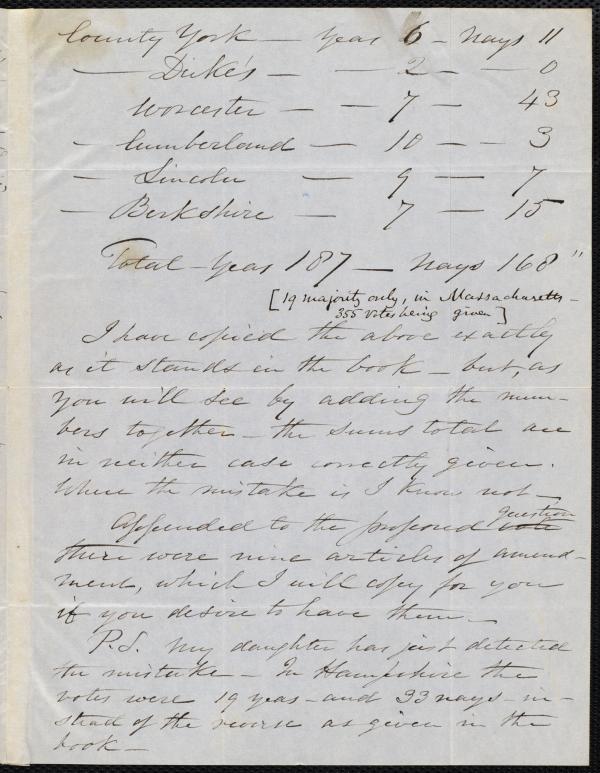 County York — yeas 6 — nays 11
— Duke's — — 2 — — 0
Worcester — — 7 — 43
— Cumberland — 10 — — 3
— Lincoln — 9 — 7
— Berkshire — 7 — 15
Total — yeas 187 — nays 168"
[19 majority only, in Massachusetts —
355 votes being given]
I have copied the above exactly
as it stands in the book — but, as
you will see by adding the num-
bers together — the sums total are
in neither case correctly given.
Where the mistake is I know not —
question
Appended to the proposed vote
there were nine articles of amend-
ment, which I will copy for you
if you desire to have them —
P.S. My daughter has just detected
the mistake — In Hampshire the
votes were 19 yeas — and 33 nays — in-
stead of the reverse as given in the
book —